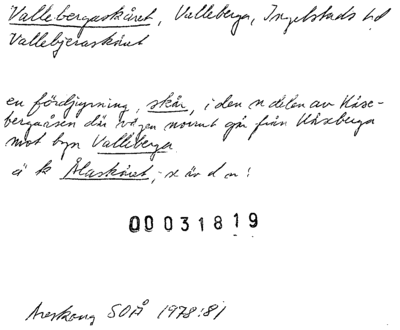 Vallebergaskåret, Valleberga, Ingelstads hd
Vallebjeraskåret
en fördjupning, skår, i den n delen av Kåse-
bergaåsen där vägen norrut går från Kåseberga
mot byn Valleberga.
ä k Ålaskåret, s är d n!
00031819
Areskoug SOÅ 1978:81